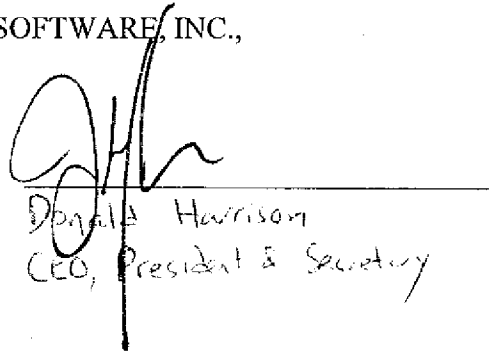 SOFTWARE, INC.,
Donald Harrison
CEO, President & Secretary